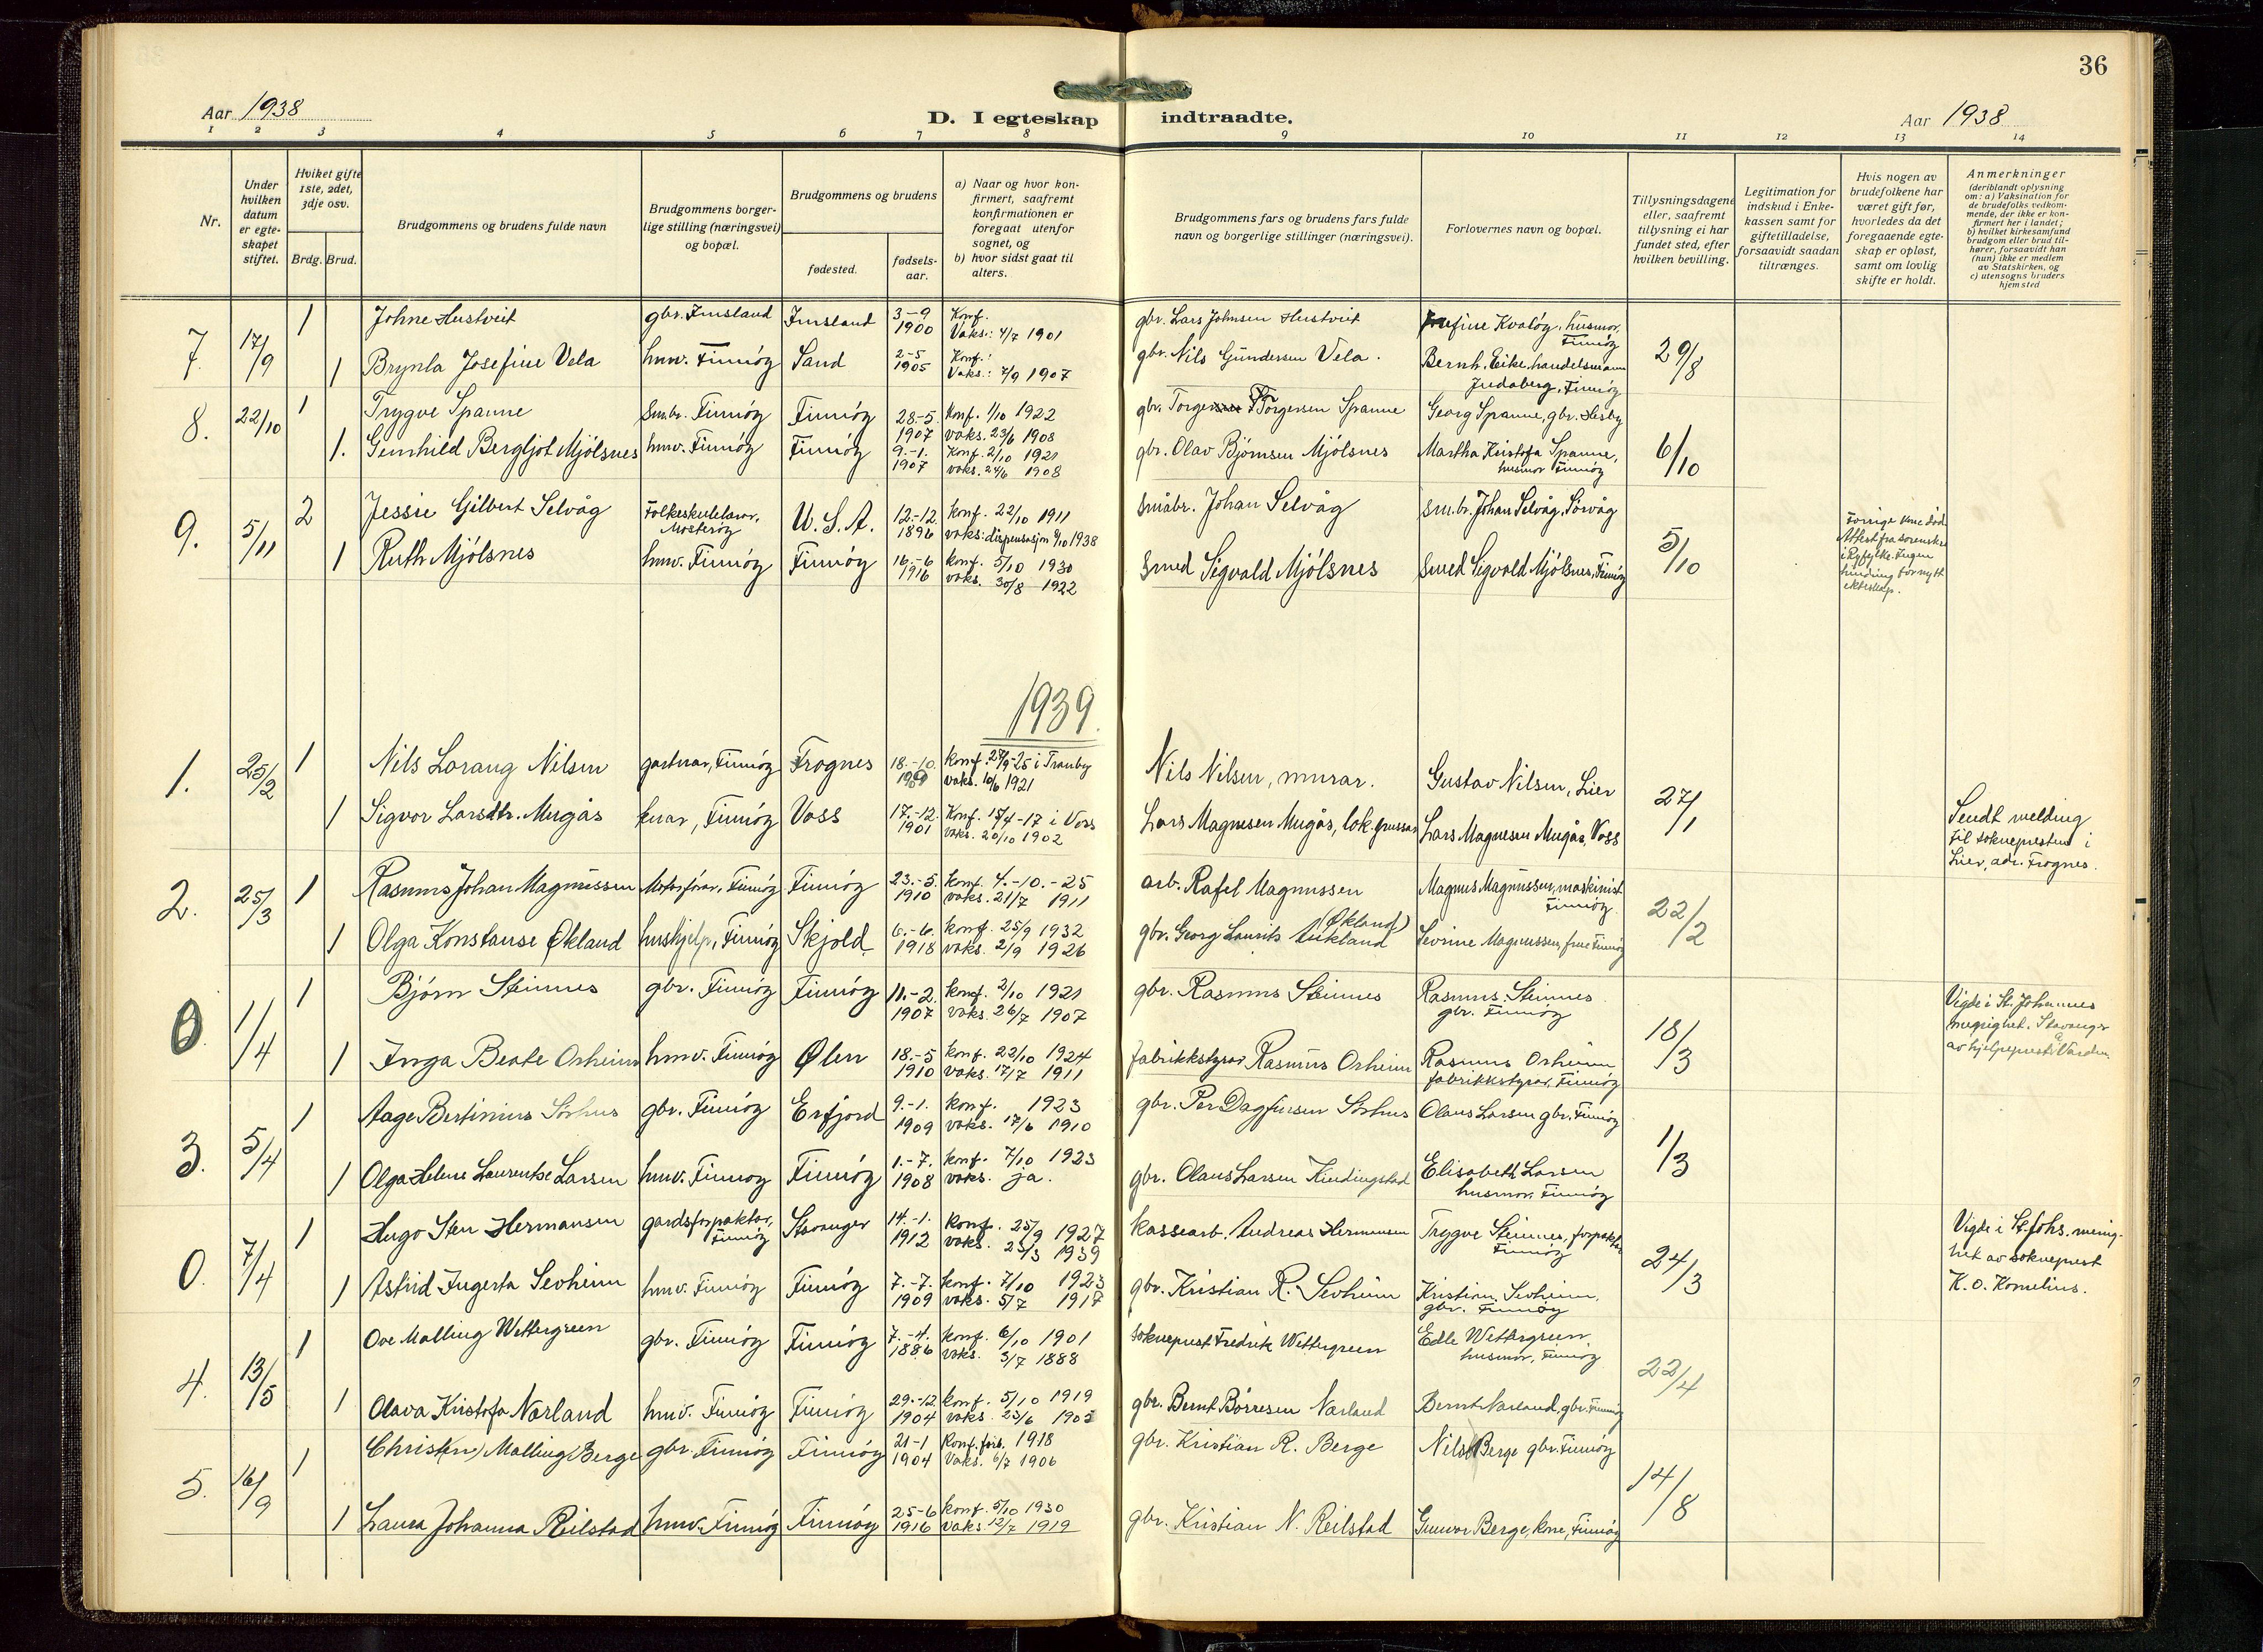 36
Aar 1938
D. I egteskap indtraadte.
Aar 1938
1 2 3 4 5 6 7 8 9 10 11 12 13 14
Nr.
Under hvilken datum er egteskapet stiftet.
Hviket gifte 1ste, 2det, 3dje osv.
Brdg. Brud.
Brudgommens og brudens fulde navn
Brudgommens borgerlige stilling (næringsvei) og bopæl.
Brudgommens og brudens
fødested.
fødselsaar.
a) Naar og hvor konfirmert, saafremt konfirmationen er foregaat utenfor sognet, og
b) hvor sidst gaat til alters.
Brudgommens fars og brudens fars fulde navn og borgerlige stillinger (næringsvei).
Forlovernes navn og bopæl.
Tillysningsdagene eller, saafremt tillysning ei har fundet sted, efter hvilken bevilling.
Legitimation for indskud i Enkekassen samt for giftetilladelse, forsaavidt saadan tiltrænges.
Hvis nogen av brudefolkene har været gift før, hvorledes da det foregaaende egteskap er opløst, samt om lovlig skifte er holdt.
Anmerkninger (deriblandt oplysning om: a) Vaksination for de brudefolks vedkommende, der ikke er konfirmert her i landet; b) hvilket kirkesamfund brudgom eller brud tilhører, forsaavidt han (hun) ikke er medlem av Statskirken, og c) utensogns bruders hjemsted
7. 17/9 1 Johne Hustveit gbr. Imsland Imsland 3-9 1900 Konf. Vaks: 4/7 1901 gbr. Lars Johnsen Hustveit Josefine Kvaløy, husmor, Finnøy 29/8
1 Brynla Josefine Vela hmv. Finnøy Sand 2-5 1905 Konf.: Vaks.: 7/9 1907 gbr. Nils Gundersen Vela. Bernh. Eike, handelsmann Judaberg, Finnøy
8. 22/10 1 Trygve Spanne smbr. Finnøy Finnøy 28-5. 1907 konf. 1/10 1922 vaks. 23/6 1908 gbr. Torgersen Spanne Georg Spanne, gbr. Hesby 6/10
1. Gunhild Bergljot Mjølsnes hmv. Finnøy Finnøy 9.-1. 1907 Konf. 2/10 1921 vaks. 24/6 1908 gbr. Olav Bjørnsen Mjølsnes Martha Kristofa Spanne, husmor Finnøy
9. 5/11 2 Jessie Gilbert Selvåg Folkeskulelærar, Mosterøy U.S.A. 12.-12. 1896 konf. 22/10 1911 vaks: dispensasjon 9/10 1938 småbr. Johan Selvåg sm.br. Johan Selvåg, Sørvåg 5/10 Forrige kone død. Attest fra sorenskr. i Ryfylke. Ingen hindring for nytt ekteskap.
1 Ruth Mjølsnes hmv. Finnøy Finnøy 16.-6 1916 konf. 5/10 1930 vaks. 30/8 1922 smed Sigvald Mjølsnes smed Sigvald Mjølsnes, Finnøy
1939.
1. 25/2 1 Nils Lorang Nilsen gartnar, Finnøy Frognes 18.-10. konf. 27/9-25 i Tranby vaks. 10/6 1921 Nils Nilsen, murar. Gustav Nilsen, Lier 27/1
1 Sigvor Larsdtr. Mugås Finnøy Voss 17.-12. 1901 Konf. 15/4-17 i Voss vaks. 20/10 1902 Lars Magnesen Mugås, lok.pussar Lars Magnesen Mugås, Voss Sendt melding til soknepresten i Lier, adr. Frognes.
2. 25/3 1 Rasmus Johan Magnussen Motorførar, Finnøy Finnøy 23.-5. 1910 konf. 4.-10.-25 vaks. 21/7 1911 arb. Rafel Magnussen Magnus Magnussen, maskinist Finnøy 22/2
1 Olga Konstanse Økland hushjelp, Finnøy Skjold 6.-6. 1918 konf. 25/9 1932 vaks. 2/9 1926 gbr. Georg Laurits Aukland (Økland) Sevrine Magnussen, frue Finnøy
0 1/4 1 Bjørn Steinnes gbr. Finnøy Finnøy 11.-2. 1907 konf. 2/10 1921 vaks. 26/7 1907 gbr. Rasmus Steinnes Rasmus Steinnes gbr. Finnøy 18/3 Vigde i St. Johannes menighet. Stavanger av hjelpeprest Varden.
1 Inga Beate Orheim hmv. Finnøy Ølen 18.-5 1910 konf. 22/10 1924 vaks. 17/7 1911 fabrikkstyrar Rasmus Orheim Rasmus Orheim fabrikkstyrar, Finnøy
3. 5/4 1 Aage Bertinius Sørhus gbr. Finnøy Erfjord 9.-1. 1909 konf. 1923 vaks. 17/6 1910 gbr. Per Dagfinsen Sørhus Olaus Larsen gbr. Finnøy 1/3
1 Olga Helene Laurentse Larsen hmv. Finnøy Finnøy 1.-7. 1908 konf. 7/10 1923 vaks. ja. gbr. Olaus Larsen Kindingstad Elisabeth Larsen husmor, Finnøy
0. 7/4 1 Hugo Sten Hermansen gardsforpaktar, Finnøy Stavanger 14.-1. 1912 konf. 25/9 1927 vaks. 23/3 1939 kassearb. Andreas Hermansen Trygve Steinnes, forpaktar Finnøy 24/3 Vigde i St. Johs. menighet av sokneprest K. O. Kornelius.
1 Astrid Ingerta Sevheim hmv. Finnøy Finnøy 7.-7. 1909 konf. 7/10 1923 vaks. 5/7 1917 gbr. Kristian R. Sevheim Kristian Sevheim, gbr. Finnøy
4. 13/5 1 Ove Malling Wettergreen gbr. Finnøy Finnøy 7.-4. 1886 konf. 6/10 1901 vaks. 3/7 1888 sokneprest Fredrik Wettergreen Edle Wettergreen husmor, Finnøy 22/4
1 Olava Kristofa Nærland hmv. Finnøy Finnøy 29.-12. 1904 konf. 5/10 1919 vaks. 23/6 1905 gbr. Bernt Børresen Nærland Bernt Nærland, gbr. Finnøy
5. 16/9 1 Christ(en) Malling Berge gbr. Finnøy Finnøy 21-1 1904 Konf. 1918 Vaks. 6/7 1906 gbr. Kristian R. Berge Nils Berge gbr. Finnøy 14/8
1 Laura Johanna Reilstad hmv. Finnøy Finnøy 25-6 1916 konf. 5/10 1930 vaks. 12/7 1919 gbr. Kristian N. Reilstad Gunvor Berge, kone, Finnøy